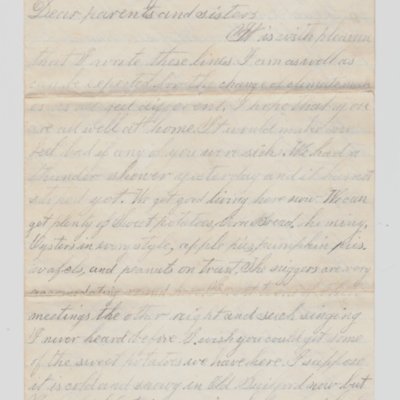 Dear parents and sisters
It is with pleasure
that I write these lines. I am as well as
can be expected for the change of climate
I hope that you
are all well at home. It would make me
feel bad if any of you were sick. We had a
thunder shower yesterday and it has not
yet. We get good living here now. We can
get plenty of sweet potatoes, corn bread, hominy,
Oysters in every style, apple pies, pumpkin pies,
wafels, and peanuts on trust. The niggers are very
accomodating
meetings the other night and such singing
I never heard before. I wish you could get some
of the sweet potatoes we have here. I suppose
it is cold and snowy in Old now, but